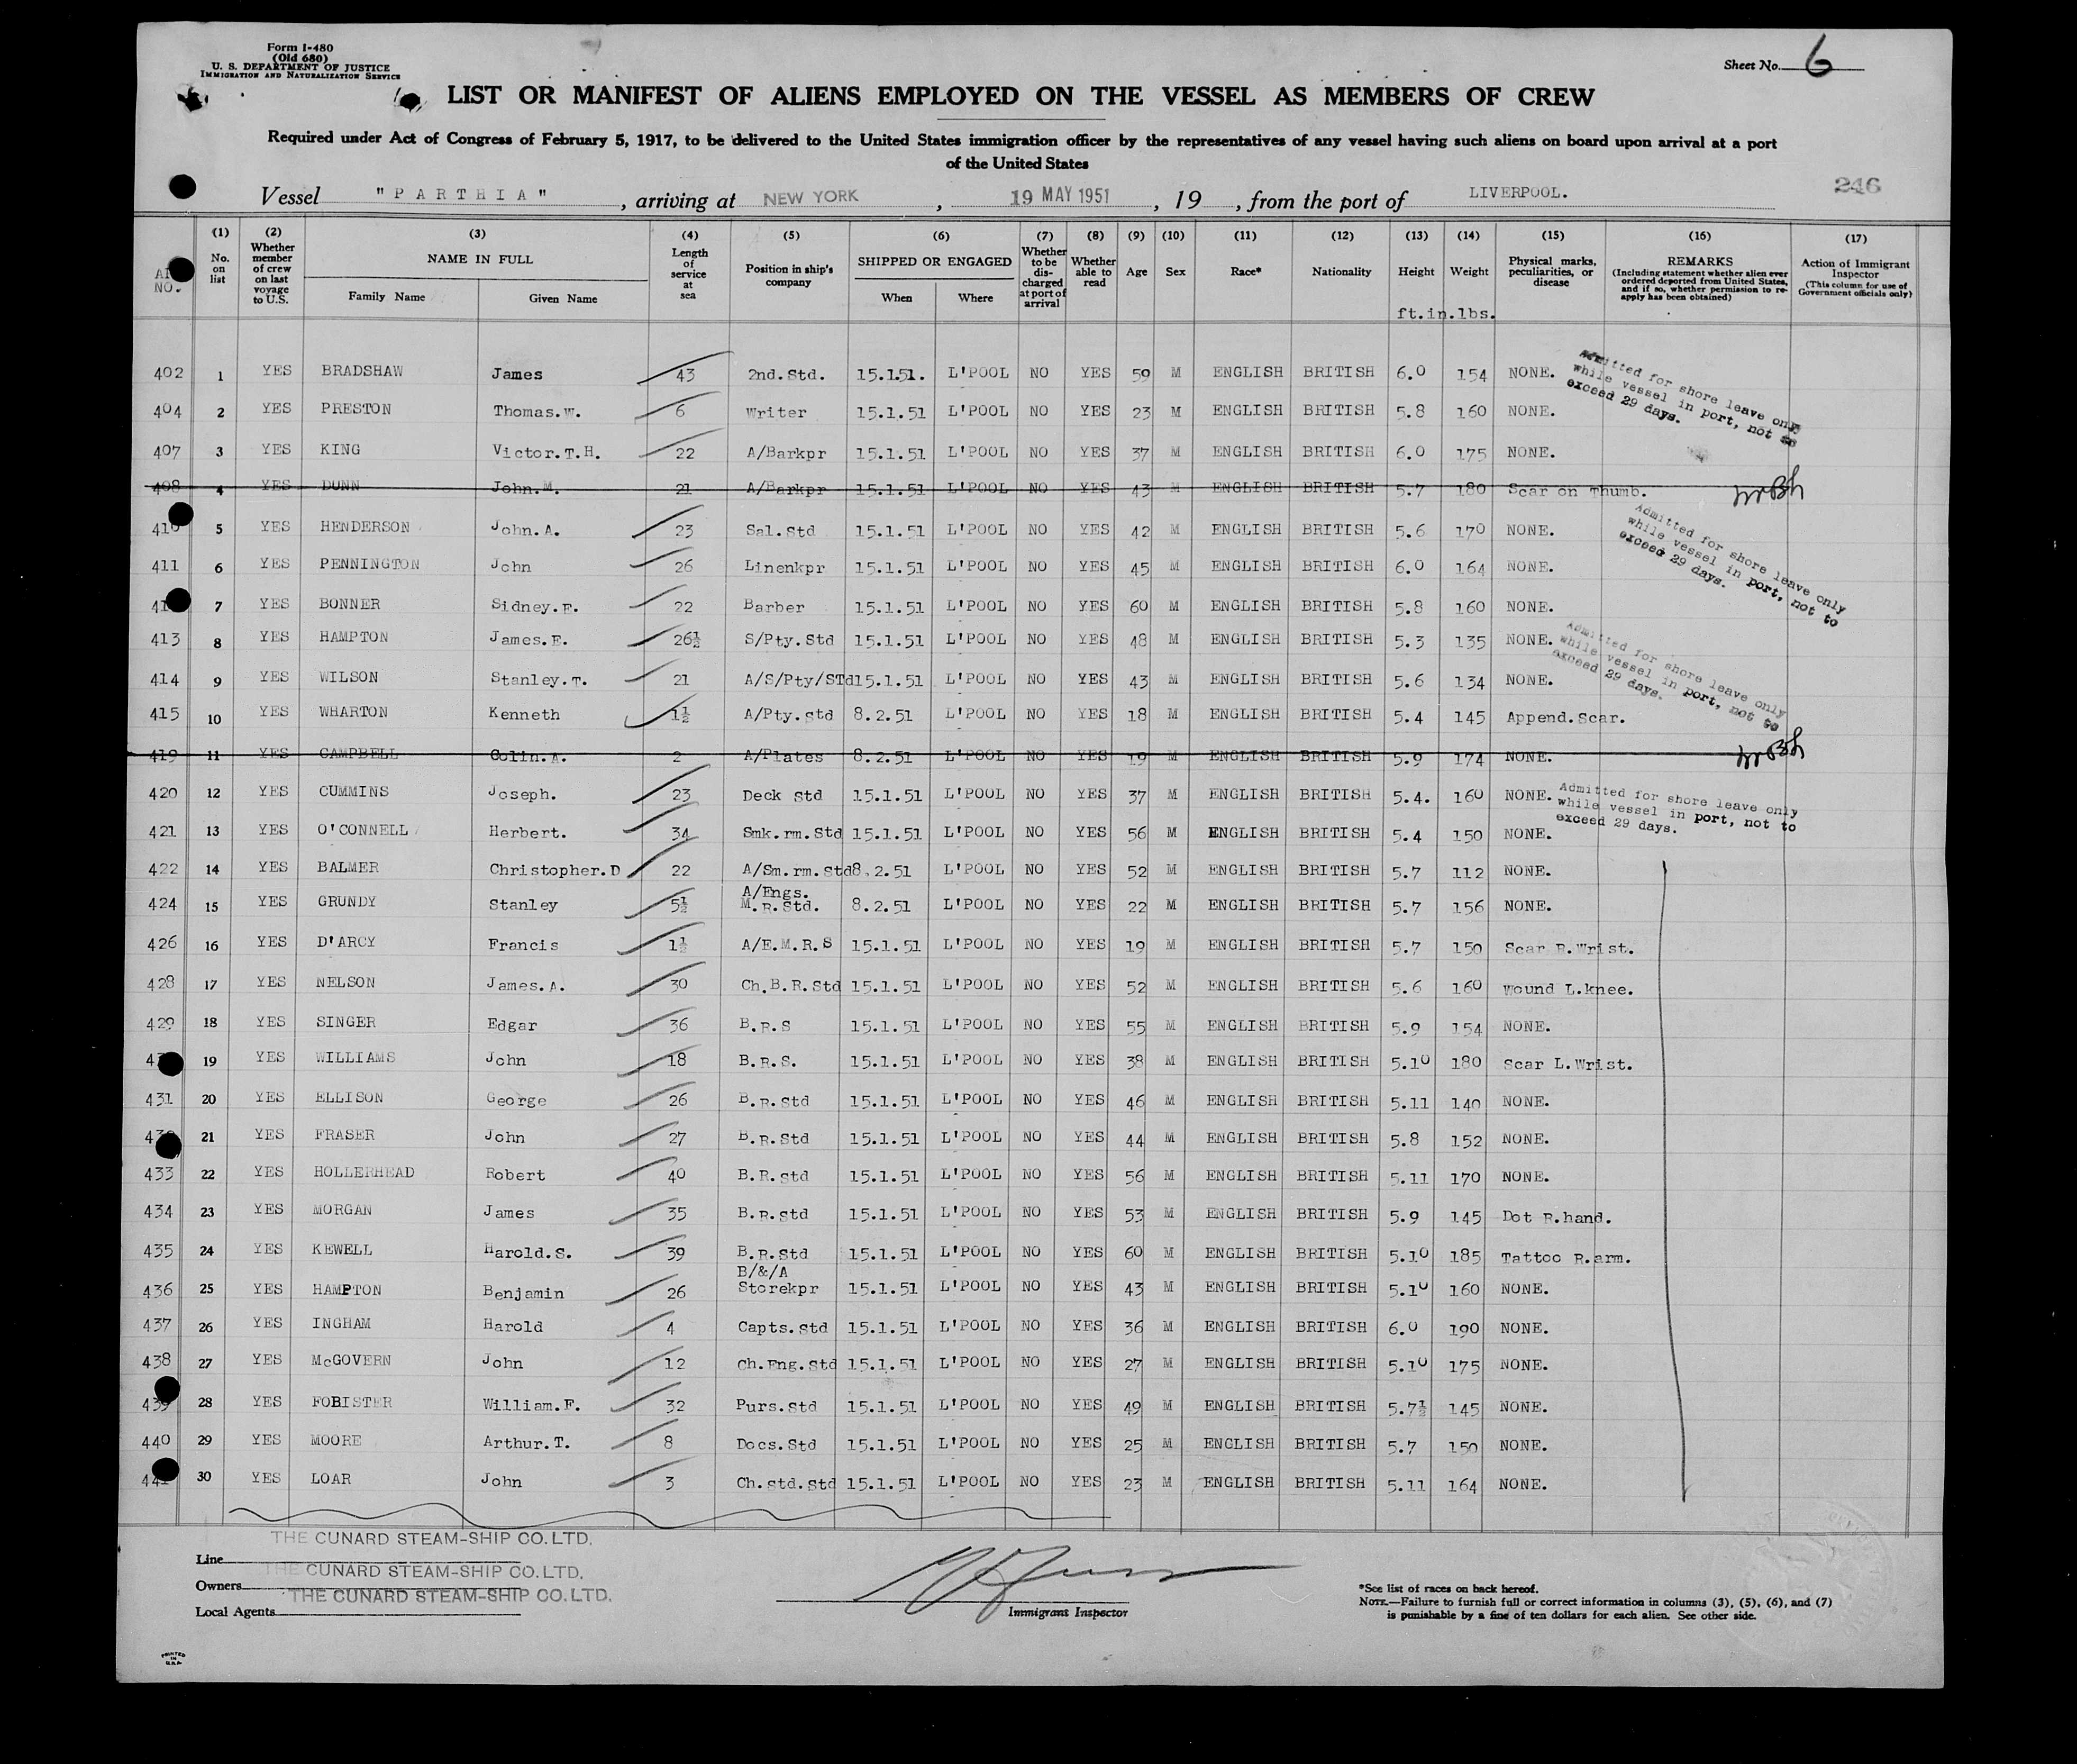 Form I-480
(Old 680)
U. S. DEPARTMENT OF JUSTICE
IMMIGRATION AND NATURALIZATION SERVICE
Sheet No. 6
LIST OR MANIFEST OF ALIENS EMPLOYED ON THE VESSEL AS MEMBERS OF CREW
Required under Act of Congress of February 5, 1917, to be delivered to the United States immigration officer by the representatives of any vessel having such aliens on board upon arrival at a port
of the United States
Vessel "PARTHIA", arriving at NEW YORK, 19 MAY 1951, 19 , from the port of LIVERPOOL.
246
NO.
(1) No. on list
(2) Whether member of crew on last voyage to U.S.
(3) NAME IN FULL
Family Name Given Name
(4) Length of service at sea
(5) Position in ship's company
(6) SHIPPED OR ENGAGED
When Where
(7) Whether to be discharged at port of arrival
(8) Whether able to read
(9) Age
(10) Sex
(11) Race*
(12) Nationality
(13) Height
(14) Weight
ft.in.lbs.
(15) Physical marks, peculiarities, or disease
(16) REMARKS
(Including statement whether alien ever ordered deported from United States, and if so, whether permission to reapply has been obtained)
(17) Action of Immigrant Inspector
(This column for use of Government officials only)
402 1 YES BRADSHAW James 43 2nd.Std. 15.1.51. L'POOL NO YES 59 M ENGLISH BRITISH 6.0 154 NONE.
Admitted for shore leave only
while vessel in port, not to
exceed 29 days.
404 2 YES PRESTON Thomas.W. 6 Writer 15.1.51 L'POOL NO YES 23 M ENGLISH BRITISH 5.8 160 NONE.
407 3 YES KING Victor.T.H. 22 A/Barkpr 15.1.51 L'POOL NO YES 37 M ENGLISH BRITISH 6.0 175 NONE.
408 4 YES DUNN John.M. 21 A/Barkpr 15.1.51 L'POOL NO YES 43 M ENGLISH BRITISH 5.7 180 Scar on Thumb.
5 YES HENDERSON John.A. 23 Sal.Std 15.1.51 L'POOL NO YES 42 M ENGLISH BRITISH 5.6 170 NONE.
Admitted for shore leave only
while vessel in port, not to
exceed 29 days.
411 6 YES PENNINGTON John 26 Linenkpr 15.1.51 L'POOL NO YES 45 M ENGLISH BRITISH 6.0 164 NONE.
7 YES BONNER Sidney.E. 22 Barber 15.1.51 L'POOL NO YES 60 M ENGLISH BRITISH 5.8 160 NONE.
413 8 YES HAMPTON James.E. 26½ S/Pty.Std 15.1.51 L'POOL NO YES 48 M ENGLISH BRITISH 5.3 135 NONE.
Admitted for shore leave only
while vessel in port, not to
exceed 29 days.
414 9 YES WILSON Stanley.T. 21 A/S/Pty/STd 15.1.51 L'POOL NO YES 43 M ENGLISH BRITISH 5.6 134 NONE.
415 10 YES WHARTON Kenneth 1½ A/Pty.std 8.2.51 L'POOL NO YES 18 M ENGLISH BRITISH 5.4 145 Append.Scar.
419 11 YES CAMPBELL Colin.A. 2 A/Plates 8.2.51 L'POOL NO YES 19 M ENGLISH BRITISH 5.9 174 NONE.
420 12 YES CUMMINS Joseph. 23 Deck Std 15.1.51 L'POOL NO YES 37 M ENGLISH BRITISH 5.4. 160 NONE.
Admitted for shore leave only
while vessel in port, not to
exceed 29 days.
421 13 YES O'CONNELL Herbert. 34 Smk.rm.Std 15.1.51 L'POOL NO YES 56 M ENGLISH BRITISH 5.4 150 NONE.
422 14 YES BALMER Christopher.D 22 A/Sm.rm.Std 8.2.51 L'POOL NO YES 52 M ENGLISH BRITISH 5.7 112 NONE.
424 15 YES GRUNDY Stanley 5½ A/Engs. M.R.Std. 8.2.51 L'POOL NO YES 22 M ENGLISH BRITISH 5.7 156 NONE.
426 16 YES D'ARCY Francis 1½ A/E.M.R.S 15.1.51 L'POOL NO YES 19 M ENGLISH BRITISH 5.7 150 Scar R.Wrist.
428 17 YES NELSON James.A. 30 Ch.B.R.Std 15.1.51 L'POOL NO YES 52 M ENGLISH BRITISH 5.6 160 Wound L.knee.
429 18 YES SINGER Edgar 36 B.R.S 15.1.51 L'POOL NO YES 55 M ENGLISH BRITISH 5.9 154 NONE.
19 YES WILLIAMS John 18 B.R.S. 15.1.51 L'POOL NO YES 38 M ENGLISH BRITISH 5.10 180 Scar L.Wrist.
431 20 YES ELLISON George 26 B.R.Std 15.1.51 L'POOL NO YES 46 M ENGLISH BRITISH 5.11 140 NONE.
21 YES FRASER John 27 B.R.Std 15.1.51 L'POOL NO YES 44 M ENGLISH BRITISH 5.8 152 NONE.
433 22 YES HOLLERHEAD Robert 40 B.R.std 15.1.51 L'POOL NO YES 56 M ENGLISH BRITISH 5.11 170 NONE.
434 23 YES MORGAN James 35 B.R.std 15.1.51 L'POOL NO YES 53 M ENGLISH BRITISH 5.9 145 Dot R.hand.
435 24 YES KEWELL Harold.S. 39 B.R.Std 15.1.51 L'POOL NO YES 60 M ENGLISH BRITISH 5.10 185 Tattoo R.arm.
436 25 YES HAMPTON Benjamin 26 B/&/A Storekpr 15.1.51 L'POOL NO YES 43 M ENGLISH BRITISH 5.10 160 NONE.
437 26 YES INGHAM Harold 4 Capts.std 15.1.51 L'POOL NO YES 36 M ENGLISH BRITISH 6.0 190 NONE.
438 27 YES McGOVERN John 12 Ch.Eng.Std 15.1.51 L'POOL NO YES 27 M ENGLISH BRITISH 5.10 175 NONE.
439 28 YES FOBISTER William.F. 32 Purs.Std 15.1.51 L'POOL NO YES 49 M ENGLISH BRITISH 5.7½ 145 NONE.
440 29 YES MOORE Arthur.T. 8 Docs.Std 15.1.51 L'POOL NO YES 25 M ENGLISH BRITISH 5.7 150 NONE.
441 30 YES LOAR John 3 Ch.std.std 15.1.51 L'POOL NO YES 23 M ENGLISH BRITISH 5.11 164 NONE.
THE CUNARD STEAM-SHIP CO.LTD.
Line
THE CUNARD STEAM-SHIP CO.LTD.
Owners
THE CUNARD STEAM-SHIP CO.LTD.
Local Agents
Immigrant Inspector
*See list of races on back hereof.
NOTE.—Failure to furnish full or correct information in columns (3), (5), (6), and (7)
is punishable by a fine of ten dollars for each alien. See other side.
PRINTED IN U.S.A.